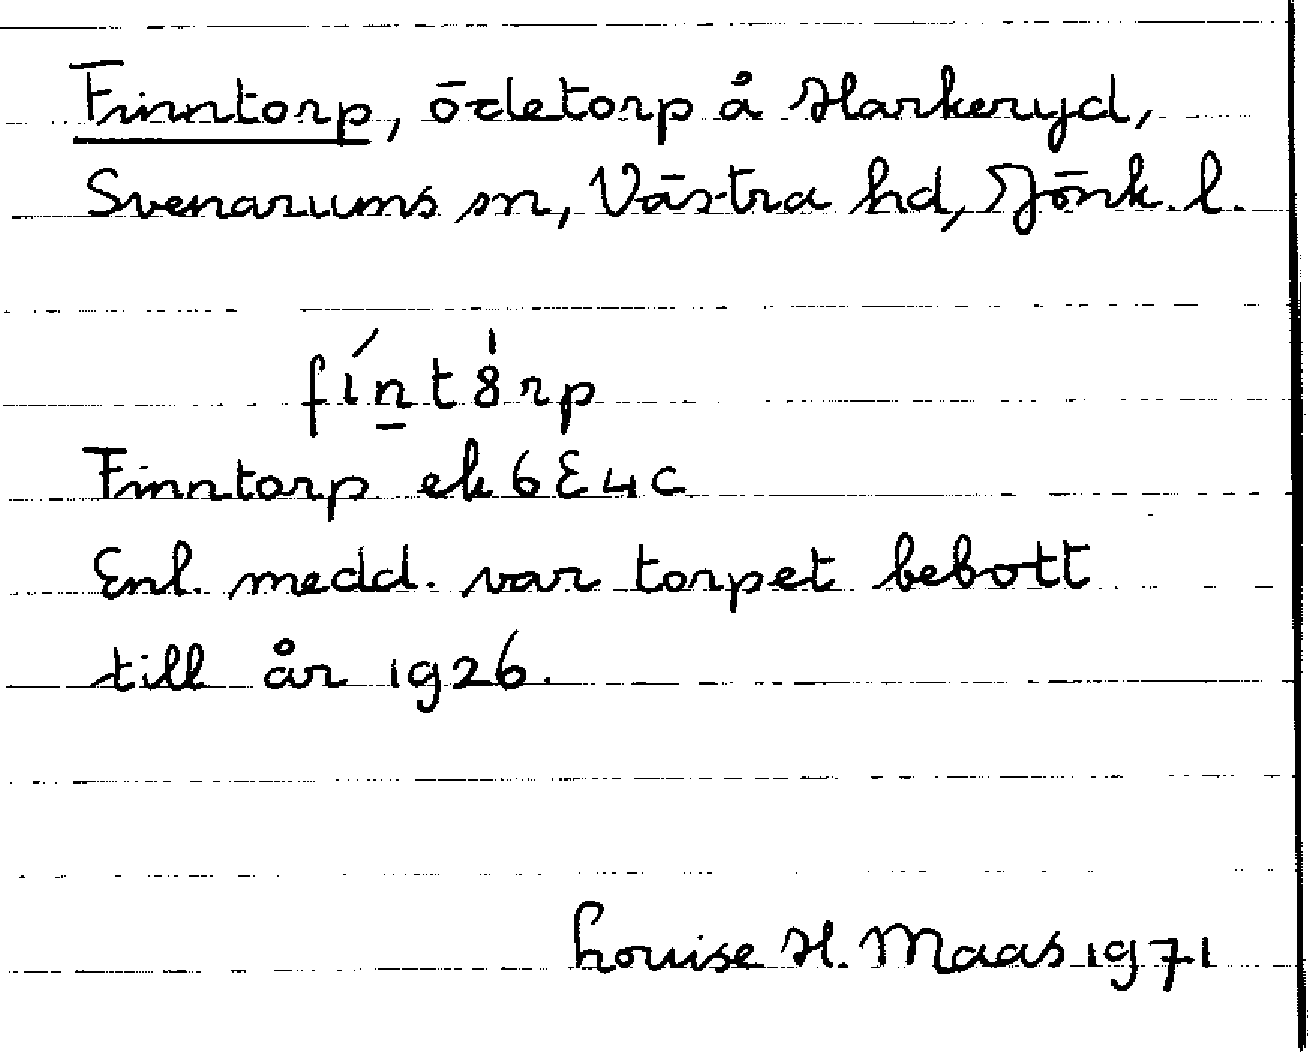 Finntorp, ödetorp å Harkeryd,
Svenarums sn, Västra hd, Jönk. l.
fíntȣ̍rp
Finntorp ek 6E4c
Enl. medd. var torpet bebott
till år 1926.
Louise H. Maas 1971